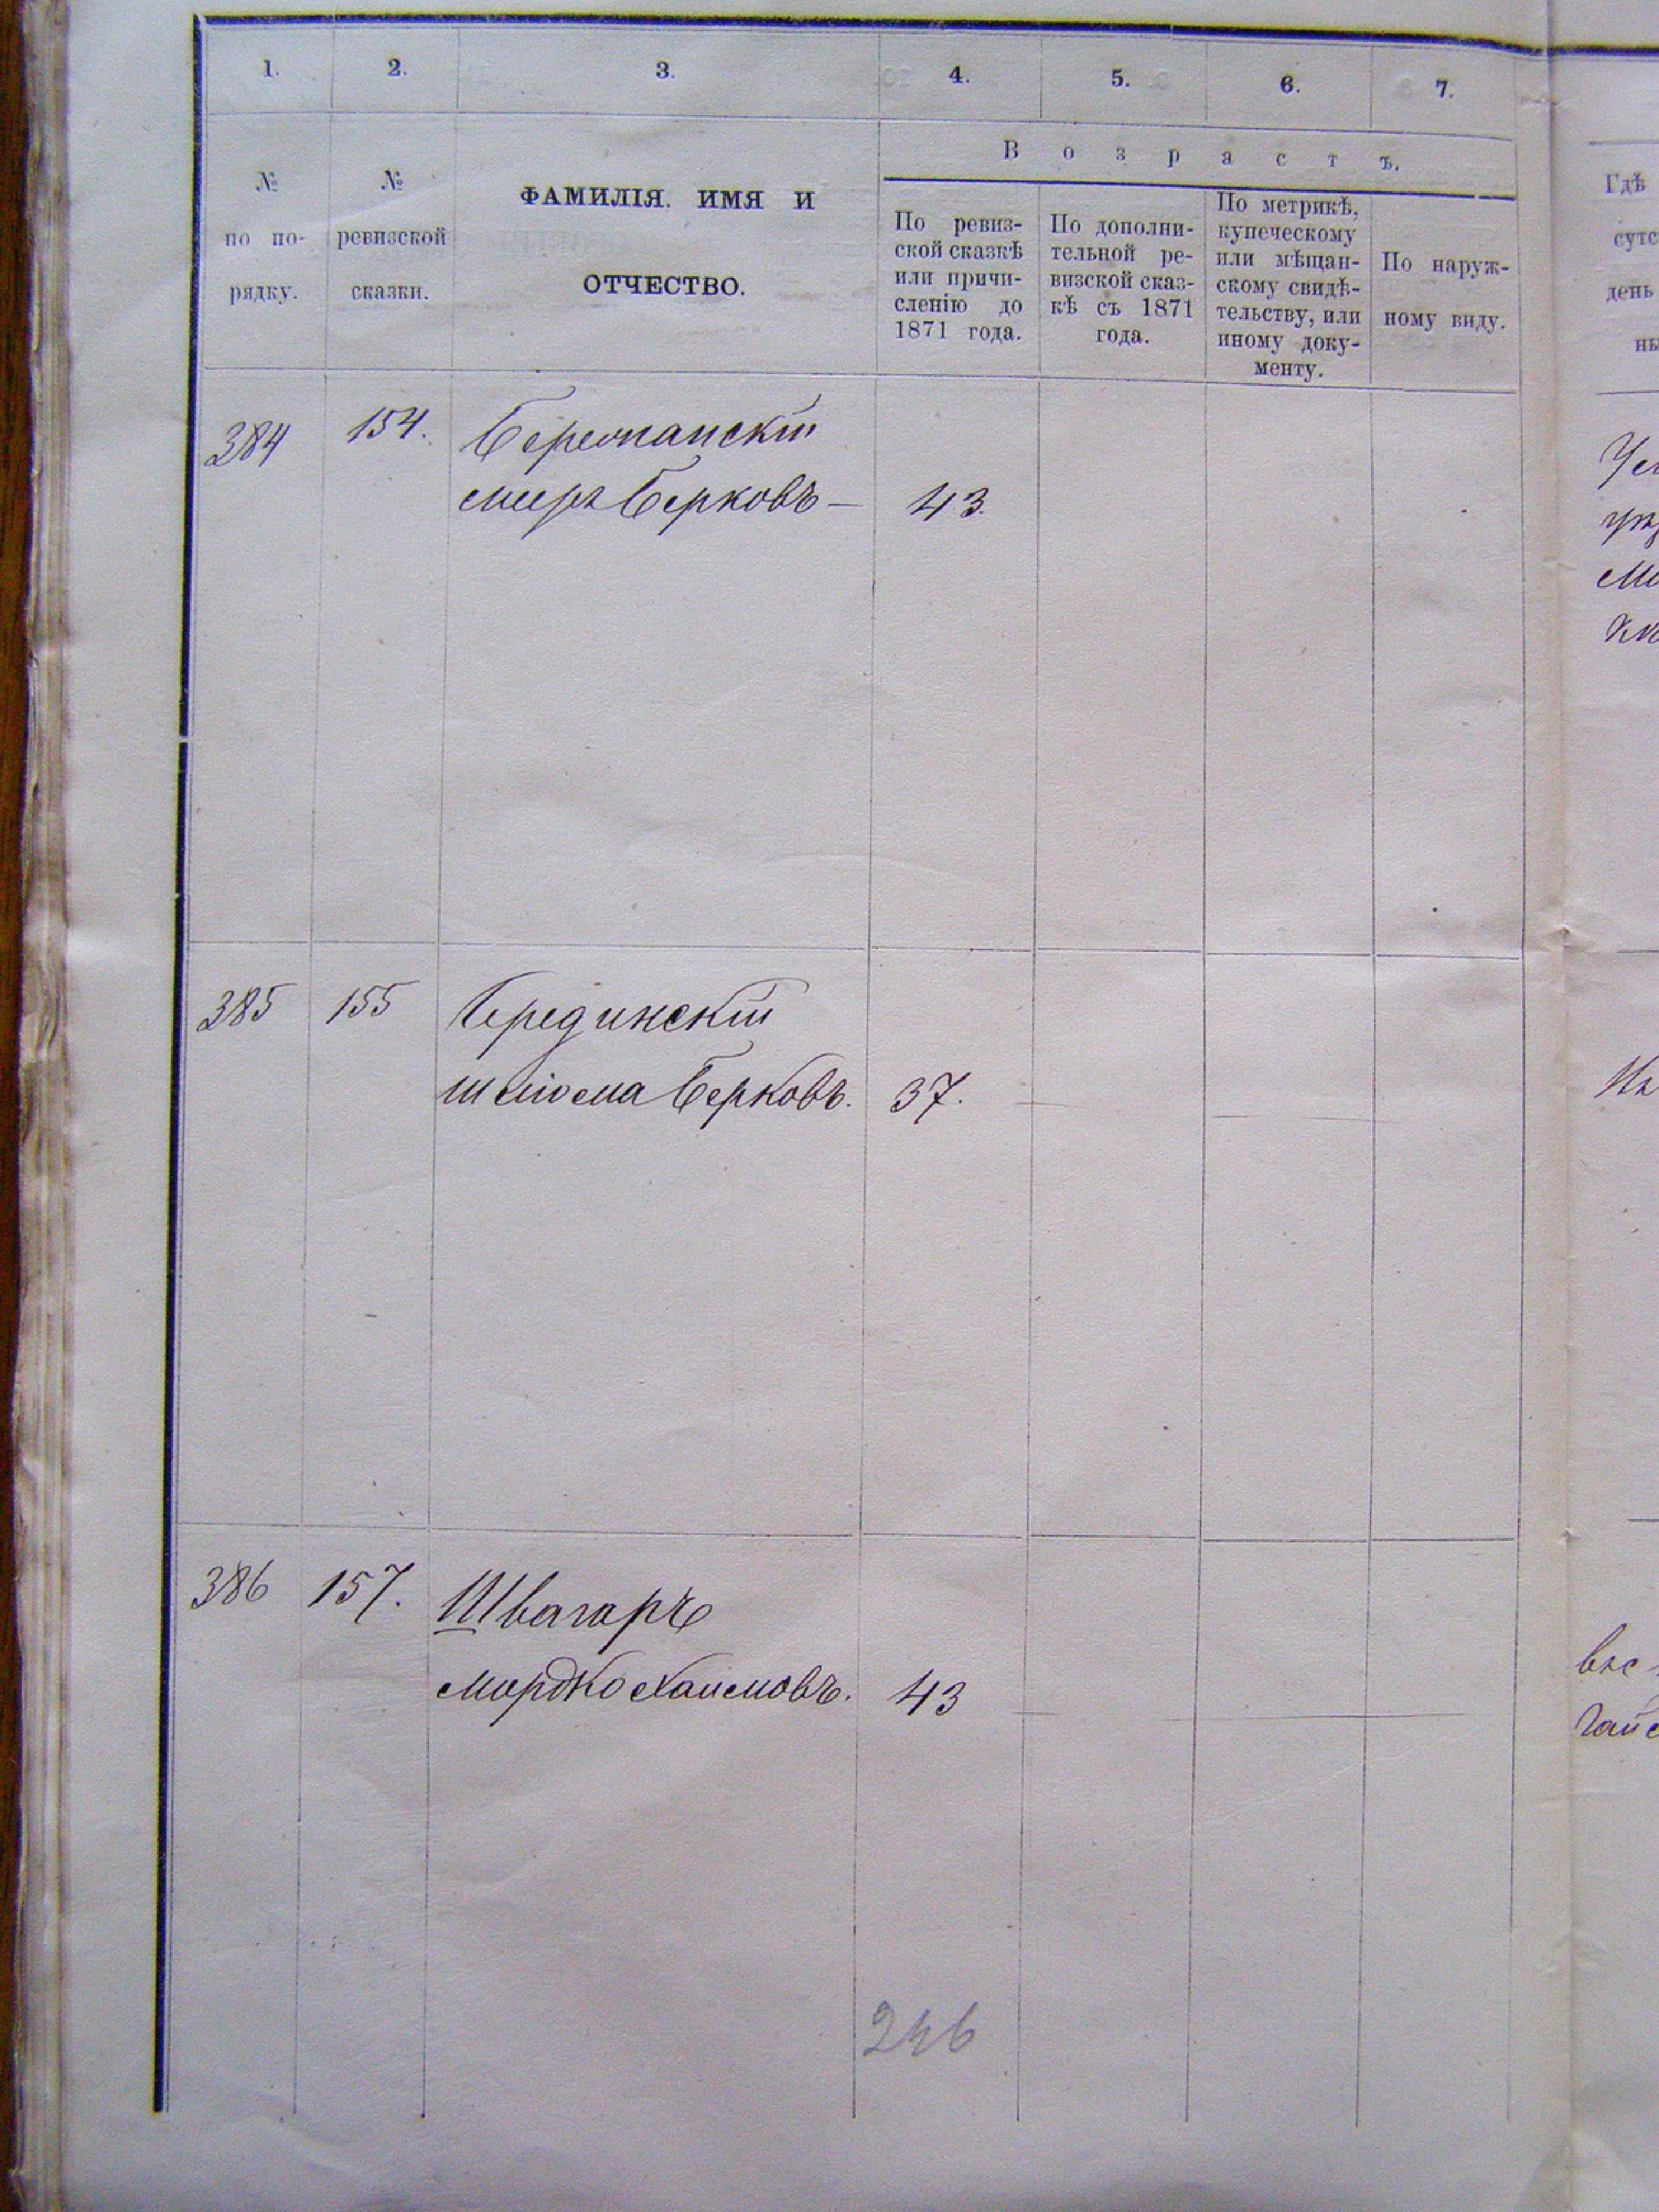 1. 2. 3. 4. 5. 6. 7.
№
по по-
рядку.
№
ревизской
сказки.
ФАМИЛІЯ. ИМЯ И
ОТЧЕСТВО.
Возрастъ.
По ревиз-
ской сказкѣ
или причи-
сленію до
1871 года.
По дополни-
тельной ре-
визской сказ-
кѣ съ 1871
года.
По метрикѣ,
купеческому
или мѣщан-
скому свидѣ-
тельству, или
иному доку-
менту.
По наруж-
ному виду.
Гдѣ
сутс
день
ны
384 154.
Берковъ — 43.
385 155
Шліома Берковъ. 37.
386 157. Швагаръ
Мордко Хаимовъ. 43
246